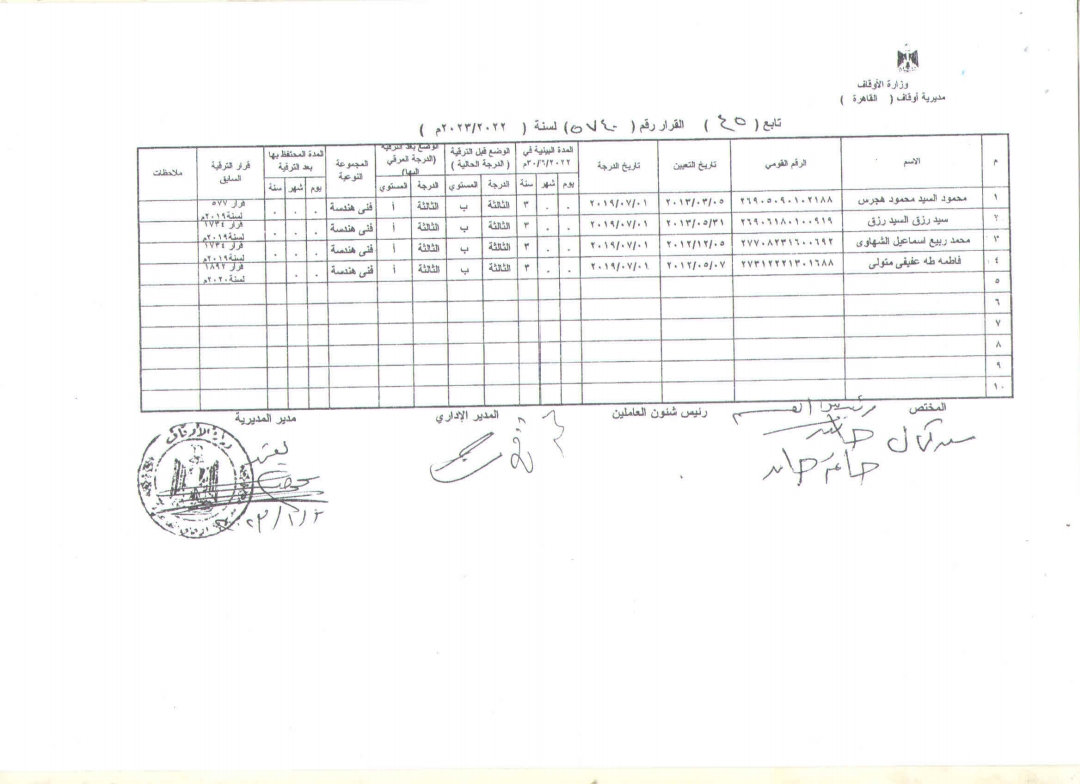 وزارة الأوقاف
مديرية أوقاف ( القاهرة )
تابع ( ٤٥ ) القرار رقم ( ٥٧٤٠ ) لسنة ( ٢٠٢٣/٢٠٢٢م )
م الاسم الرقم القومي تاريخ التعيين تاريخ الدرجة المدة البينية في ٢٠٢٢/٦/٣٠م الوضع قبل الترقية ( الدرجة الحالية ) الوضع بعد الترقية (الدرجة المرقي اليها) المجموعة النوعية المدة المحتفظ بها بعد الترقية قرار الترقية السابق ملاحظات
يوم شهر سنة الدرجة المستوي الدرجة المستوي يوم شهر سنة
١ محمود السيد محمود هجرس ٢٦٩٠٥٠٩٠١٠٢١٨٨ ٢٠١٣/٠٣/٠٥ ٢٠١٩/٠٧/٠١ ٠ ٠ ٣ الثالثة ب الثالثة أ فنى هندسة ٠ ٠ ٠ قرار ٥٧٧ لسنة٢٠١٩م
٢ سيد رزق السيد رزق ٢٦٩٠٦١٨٠١٠٠٩١٩ ٢٠١٣/٠٥/٣١ ٢٠١٩/٠٧/٠١ ٠ ٠ ٣ الثالثة ب الثالثة أ فنى هندسة ٠ ٠ ٠ قرار ١٧٣٤ لسنة٢٠١٩م
٣ محمد ربيع اسماعيل الشهاوى ٢٧٧٠٨٢٣١٦٠٠٦٩٢ ٢٠١٢/١٢/٠٥ ٢٠١٩/٠٧/٠١ ٠ ٠ ٣ الثالثة ب الثالثة أ فنى هندسة ٠ ٠ ٠ قرار ١٧٣٤ لسنة٢٠١٩م
٤ فاطمه طه عفيفى متولى ٢٧٣١٢٢٢١٣٠١٦٨٨ ٢٠١٢/٠٥/٠٧ ٢٠١٩/٠٧/٠١ ٠ ٠ ٣ الثالثة ب الثالثة أ فنى هندسة ٠ ٠ قرار ١٨٩٢ لسنة٢٠٢٠م
٥
٦
٧
٨
٩
١٠
المختص رئيس القسم رئيس شئون العاملين المدير الإداري مدير المديرية
سيد كمال
حاتم حامد
يعتمد
وزارة الأوقاف